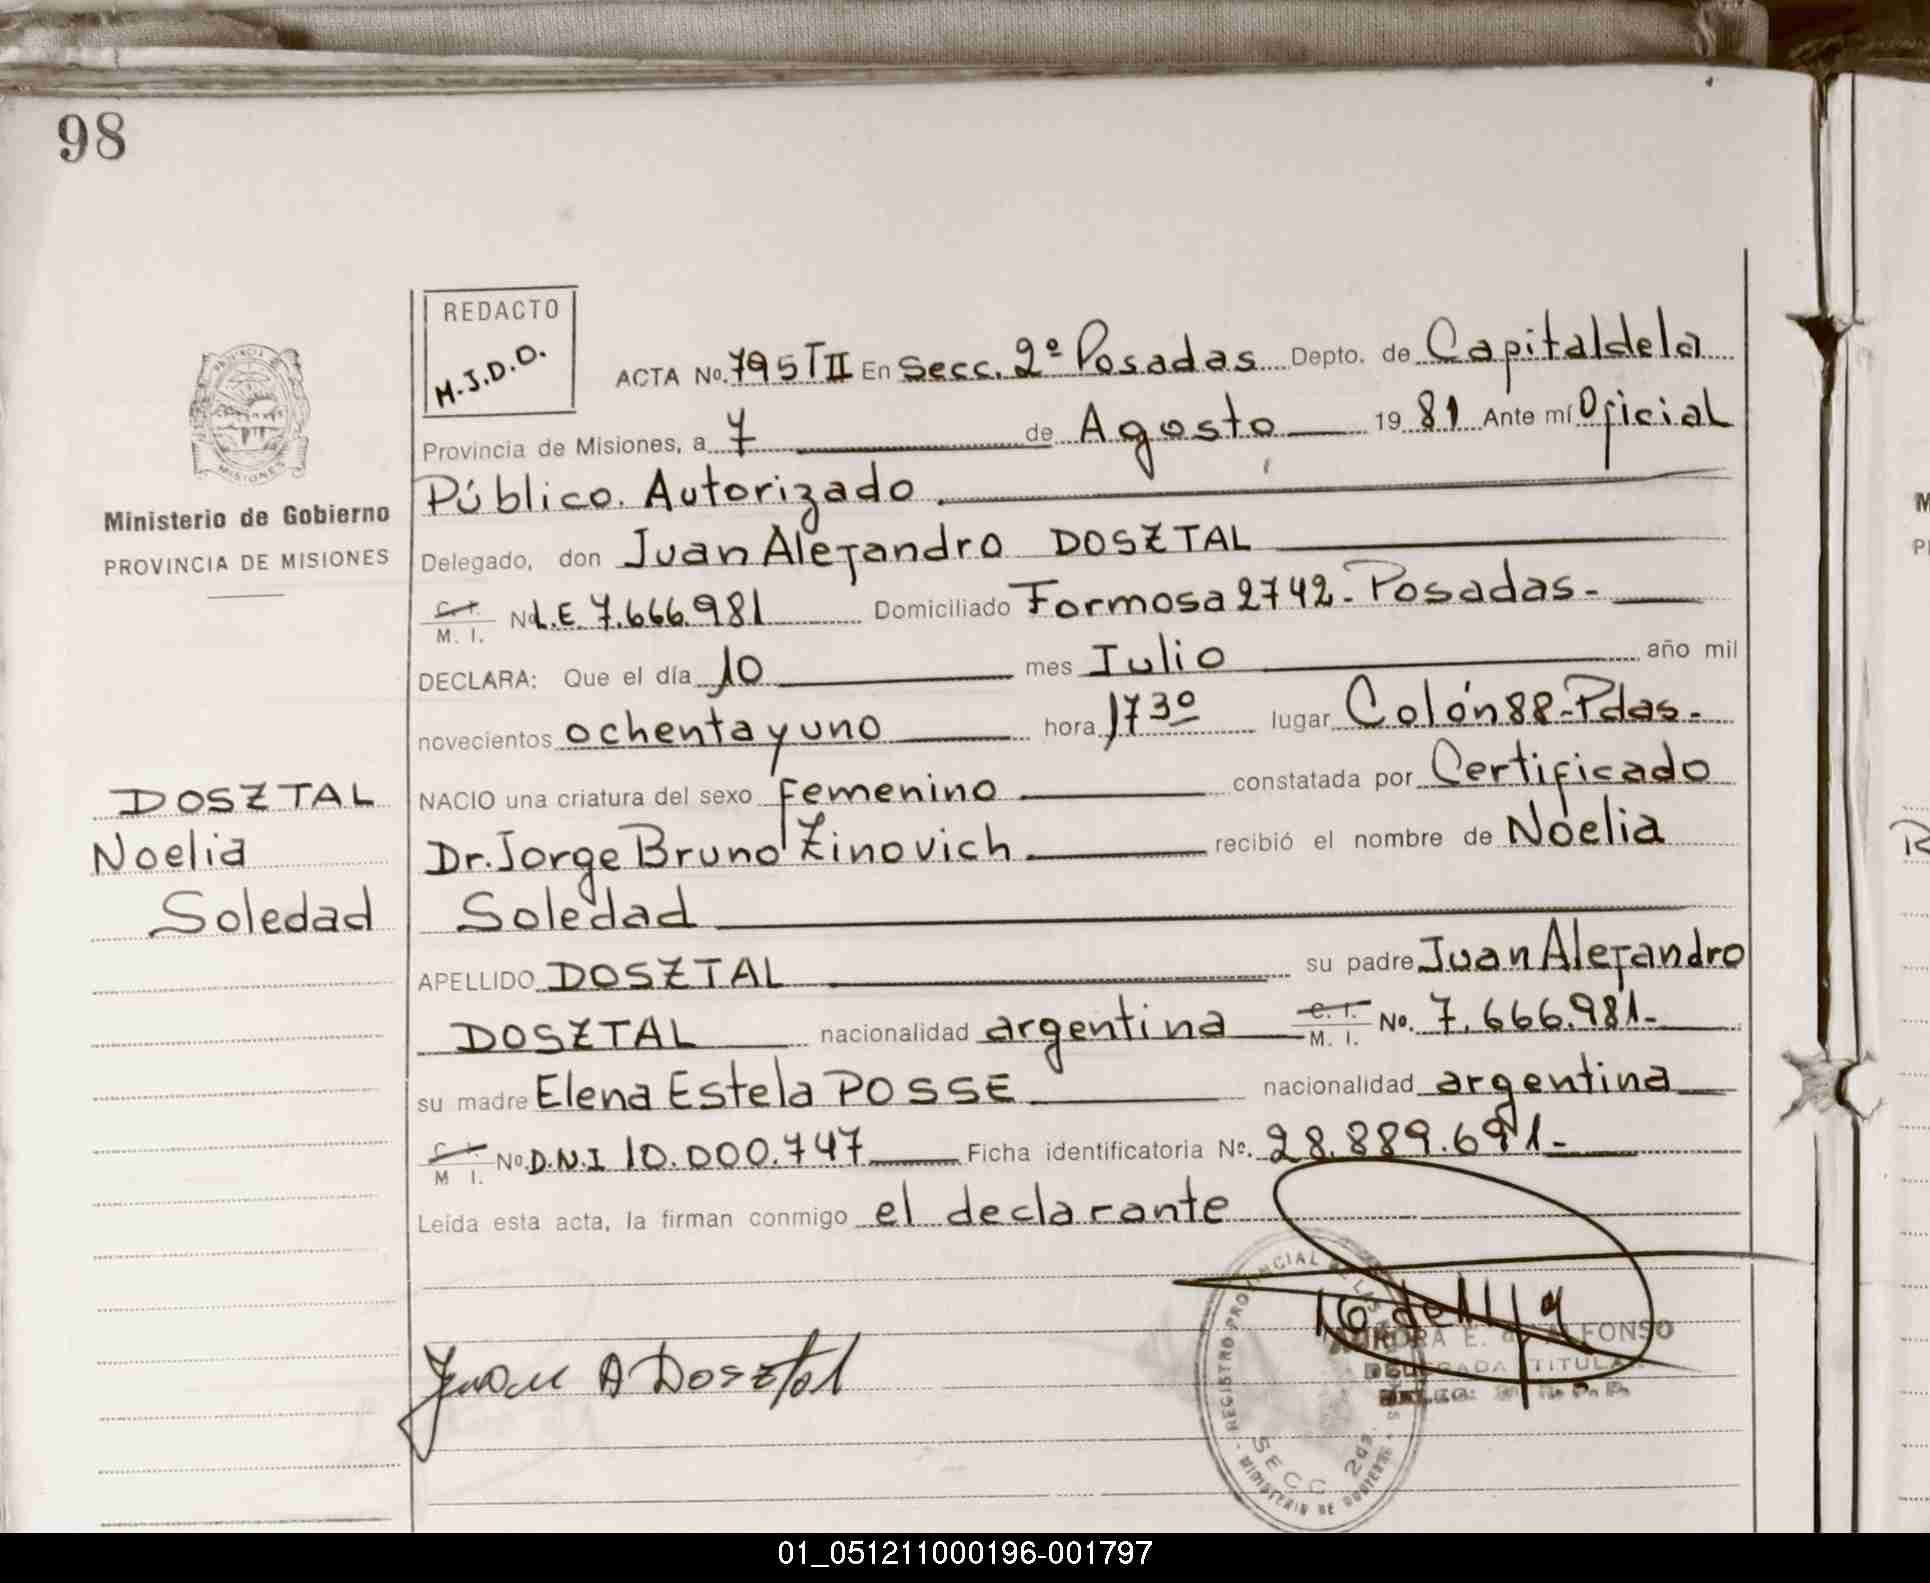 98
REDACTO
M.J.D.O.
ACTA No. 795 T II En Secc. 2º Posadas Depto. de Capital de la
Provincia de Misiones, a 7 de Agosto 1981 Ante mí Oficial
Público. Autorizado
Ministerio de Gobierno
PROVINCIA DE MISIONES
Delegado, don Juan Alejandro DOSZTAL
C.I. M. I. No L.E. 7.666.981 Domiciliado Formosa 2742 - Posadas -
DECLARA: Que el día 10 mes Julio año mil
novecientos ochenta y uno hora 17 30 lugar Colón 88 - Pdas -
NACIO una criatura del sexo femenino constatada por Certificado
Dr. Jorge Bruno Zinovich recibió el nombre de Noelia
Soledad
DOSZTAL
Noelia
Soledad
APELLIDO DOSZTAL su padre Juan Alejandro
DOSZTAL nacionalidad argentina C. I. M. I. No. 7.666.981 -
su madre Elena Estela POSSE nacionalidad argentina
C.I. M I. No. D.N.I 10.000.747 Ficha identificatoria Nº. 28.889.691 -
Leída esta acta, la firman conmigo el declarante
Juan A Dosztal
E. ALFONSO
DELEGADA TITULAR
REGISTRO PROVINCIAL DE LAS
SECC 2da.
MINISTERIO DE GOBIERNO
01_051211000196-001797